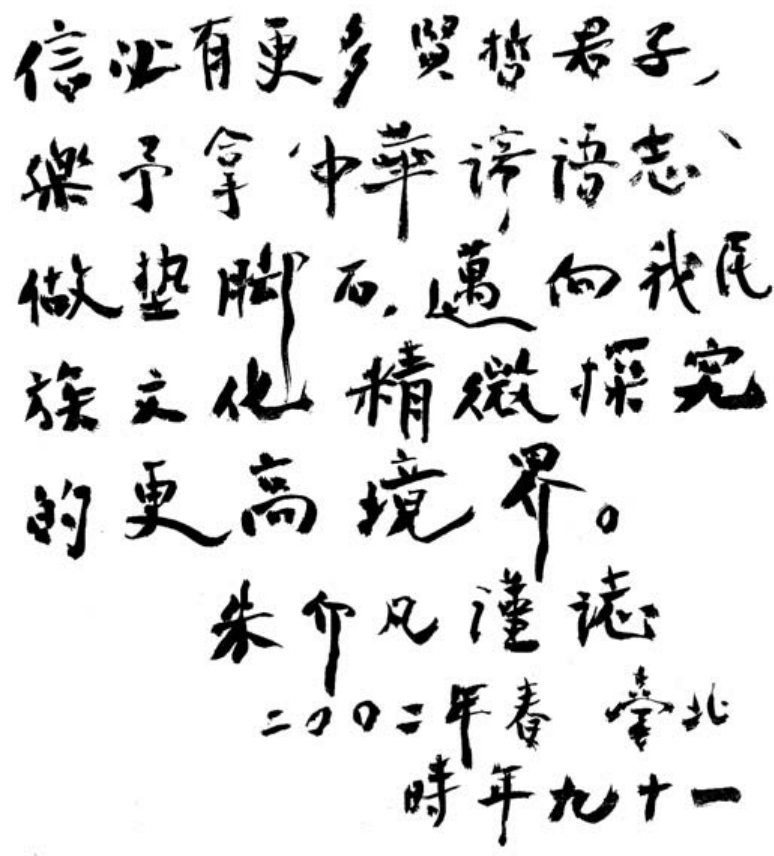 信必有更多賢哲君子，
樂予拿『中華諺語志』
做墊脚石，邁向我民
族文化精微探究
的更高境界。
朱介凡謹誌
二〇〇二年春 臺北
時年九十一